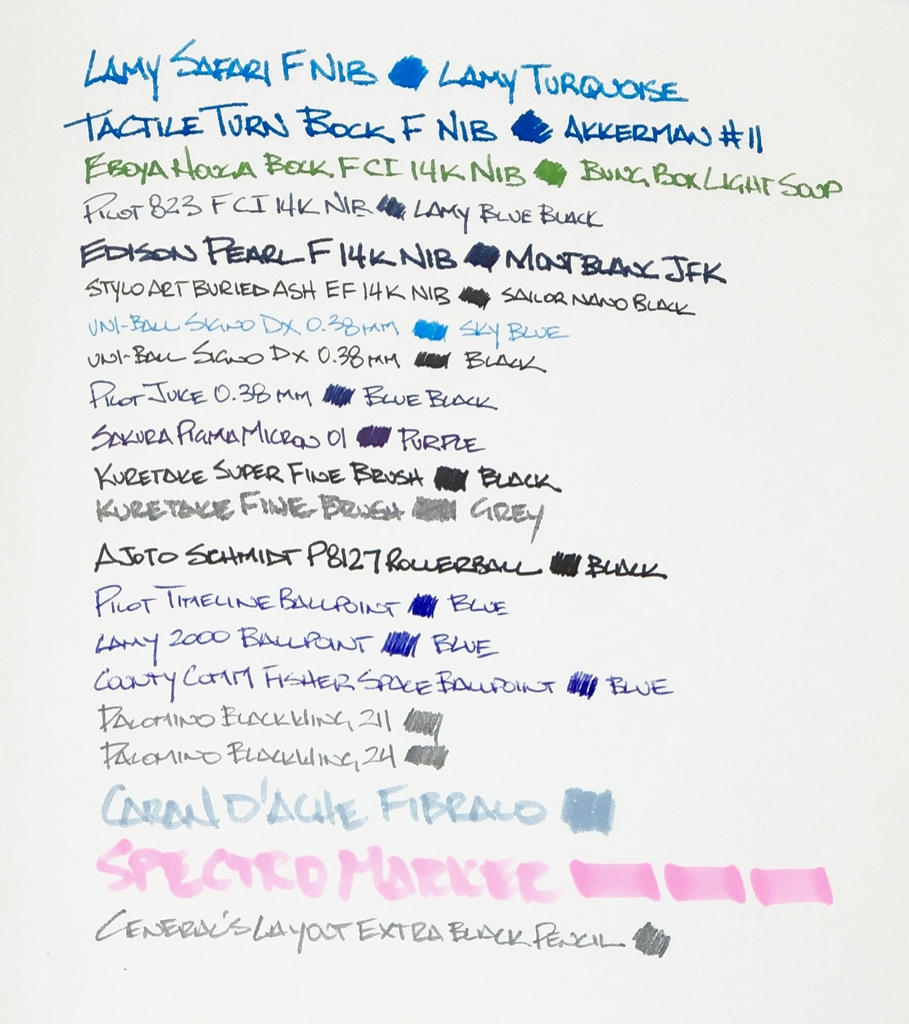 LAMY SAFARI F NIB LAMY TURQUOISE
TACTILE TURN BOCK F NIB AKKERMAN #11
EBOYA HOUGA BOCK F CI 14K NIB BUNG BOX LIGHT SOUP
PILOT 823 F CI 14K NIB LAMY BLUE BLACK
EDISON PEARL F 14K NIB MONTBLANC JFK
STYLO ART BURIED ASH EF 14K NIB SAILOR NANO BLACK
UNI-BALL SIGNO DX 0.38MM SKY BLUE
UNI-BALL SIGNO DX 0.38MM BLACK
PILOT JUICE 0.38 MM BLUE BLACK
SAKURA PIGMA MICRON 01 PURPLE
KURETAKE SUPER FINE BRUSH BLACK
KURETAKE FINE BRUSH GREY
AJOTO SCHMIDT P8127 ROLLERBALL BLACK
PILOT TIMELINE BALLPOINT BLUE
LAMY 2000 BALLPOINT BLUE
COUNTY COMM FISHER SPACE BALLPOINT BLUE
PALOMINO BLACKWING 211
PALOMINO BLACKWING 24
CARAN D'ACHE FIBRALO
SPECTRO MARKER
GENERAL'S LAYOUT EXTRA BLACK PENCIL